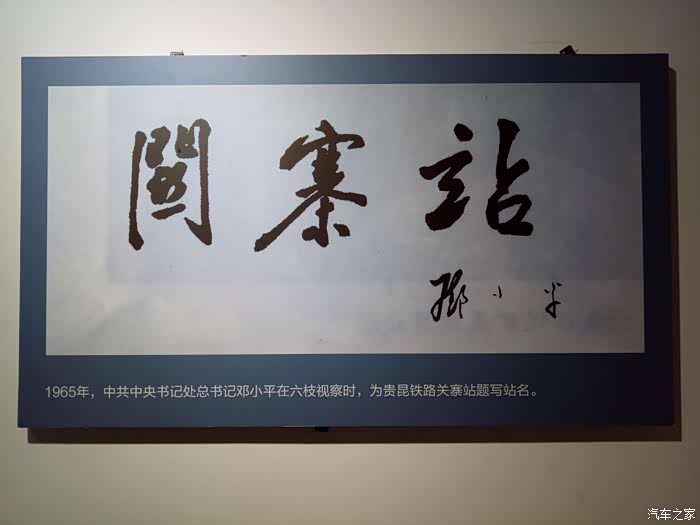 關寨站
鄧小平
1965年，中共中央书记处总书记邓小平在六枝视察时，为贵昆铁路关寨站题写站名。
汽车之家